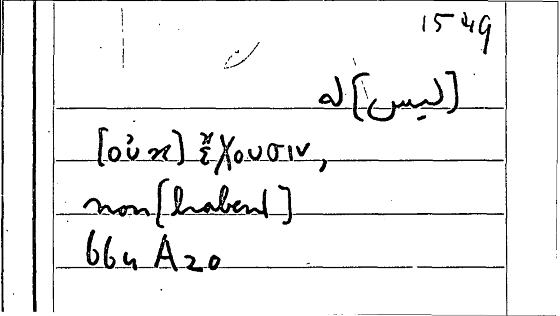 1549
[ليس] له
[οὐκ] ἔχουσιν,
non [habent]
664 A20